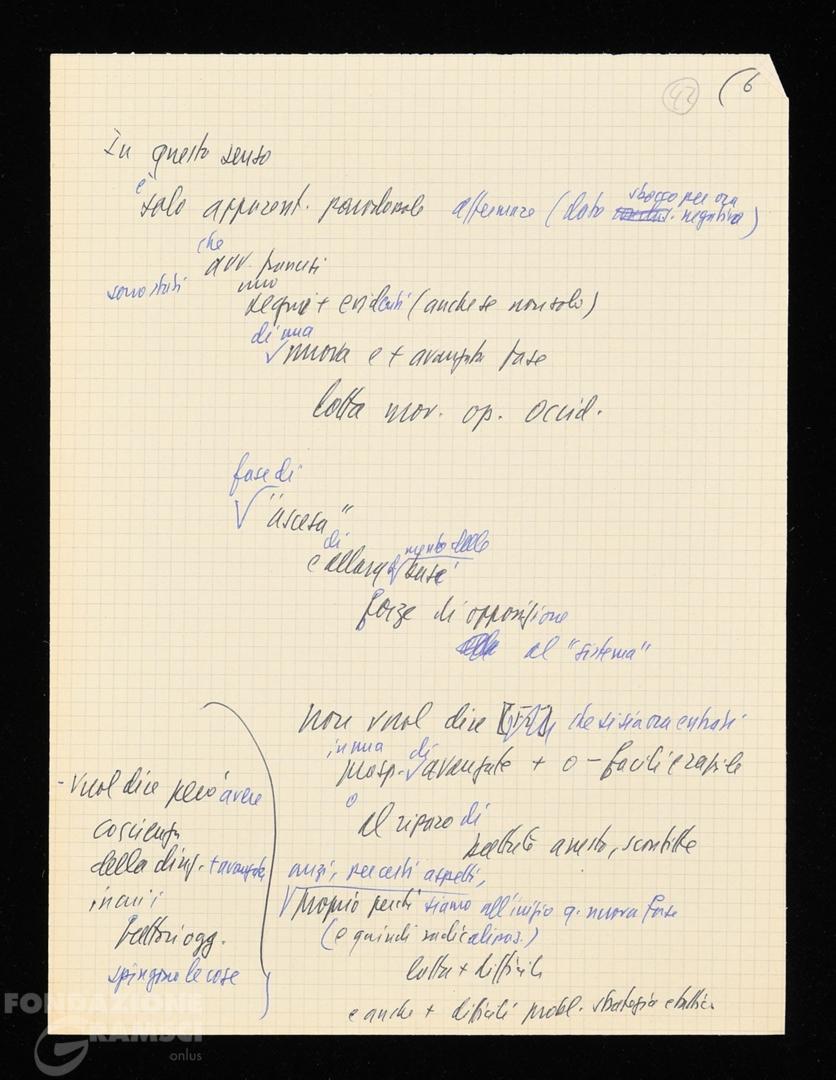 42
(6
In questo senso
è
solo apparent. paradossale affermare (dato sbocco per ora negativo)
che
avv. francesi
sono stati uno
segni + evidenti (anche se non solo)
di una
nuova e + avanzata fase
lotta mov. op. occid.
fase di
"ascesa"
di
e allargamento delle basi
forze di opposizione
al "sistema"
non vuol dire che si sia ora entrati
in una di
prosp. avanzate + o - facili e rapide
o
al riparo di
battute arresto, sconfitte
- vuol dire però avere
coscienza
della direz. + avanzata
in cui i
fattori ogg.
spingono le cose
anzi, per certi aspetti,
proprio perché siamo all'inizio q. nuova fase
(e quindi radicalizzaz.)
lotta + difficile
e anche + difficili probl. strategia e tattica
FONDAZIONE
GRAMSCI
onlus